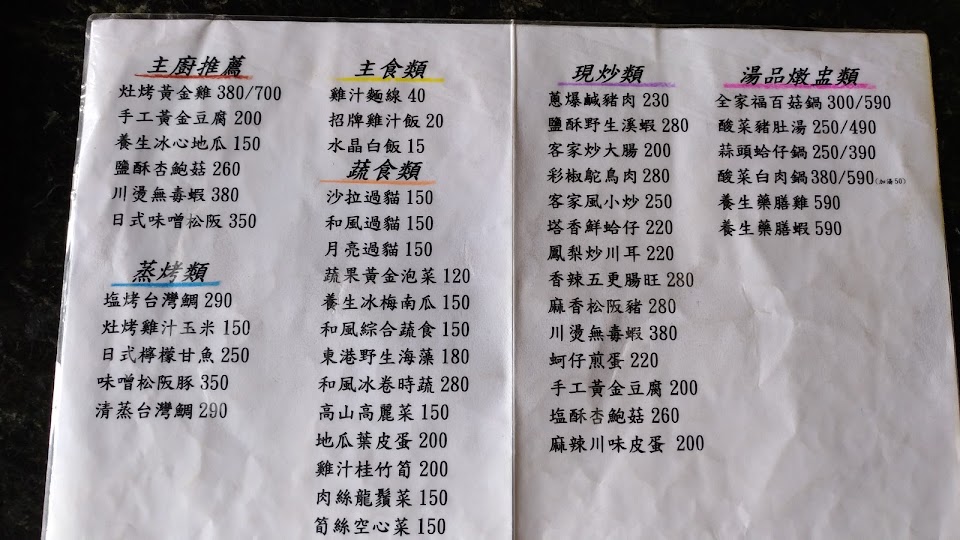 主廚推薦
灶烤黃金雞 380/700
手工黃金豆腐 200
養生冰心地瓜 150
鹽酥杏鮑菇 260
川燙無毒蝦 380
日式味噌松阪 350
蒸烤類
塩烤台灣鯛 290
灶烤雞汁玉米 150
日式檸檬甘魚 250
味噌松阪豚 350
清蒸台灣鯛 290
主食類
雞汁麵線 40
招牌雞汁飯 20
水晶白飯 15
蔬食類
沙拉過貓 150
和風過貓 150
月亮過貓 150
蔬果黃金泡菜 120
養生冰梅南瓜 150
和風綜合蔬食 150
東港野生海藻 180
和風冰卷時蔬 280
高山高麗菜 150
地瓜葉皮蛋 200
雞汁桂竹筍 200
肉絲龍鬚菜 150
筍絲空心菜 150
現炒類
蔥爆鹹豬肉 230
鹽酥野生溪蝦 280
客家炒大腸 200
彩椒鴕鳥肉 280
客家風小炒 250
塔香鮮蛤仔 220
鳳梨炒川耳 220
香辣五更腸旺 280
麻香松阪豬 280
川燙無毒蝦 380
蚵仔煎蛋 220
手工黃金豆腐 200
塩酥杏鮑菇 260
麻辣川味皮蛋 200
湯品燉盅類
全家福百菇鍋 300/590
酸菜豬肚湯 250/490
蒜頭蛤仔鍋 250/390
酸菜白肉鍋 380/590(加湯50)
養生藥膳雞 590
養生藥膳蝦 590